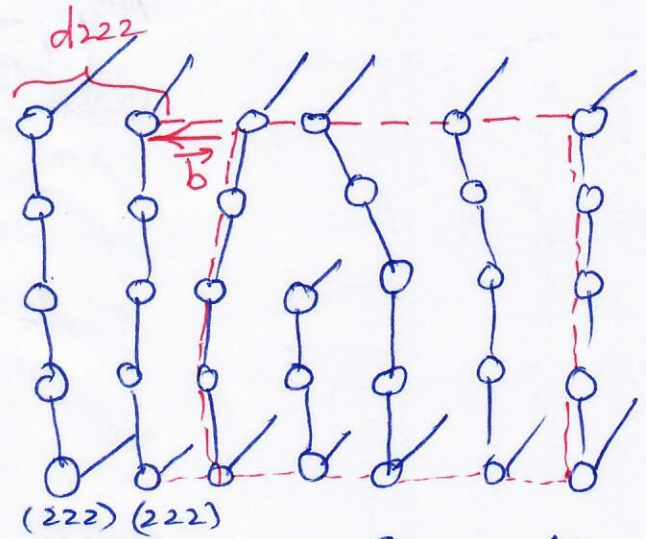 d222
b
(222) (222)